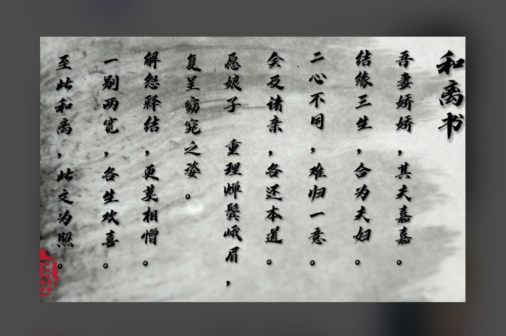 和离书
吾妻娇娇，其夫嘉嘉。
结缘三生，合为夫妇。
二心不同，难归一意。
会及诸亲，各还本道。
愿娘子 重理婵鬓峨眉，
复呈窈窕之姿。
解怨释结，更莫相憎。
一别两宽，各生欢喜。
至此和离，此文为照。